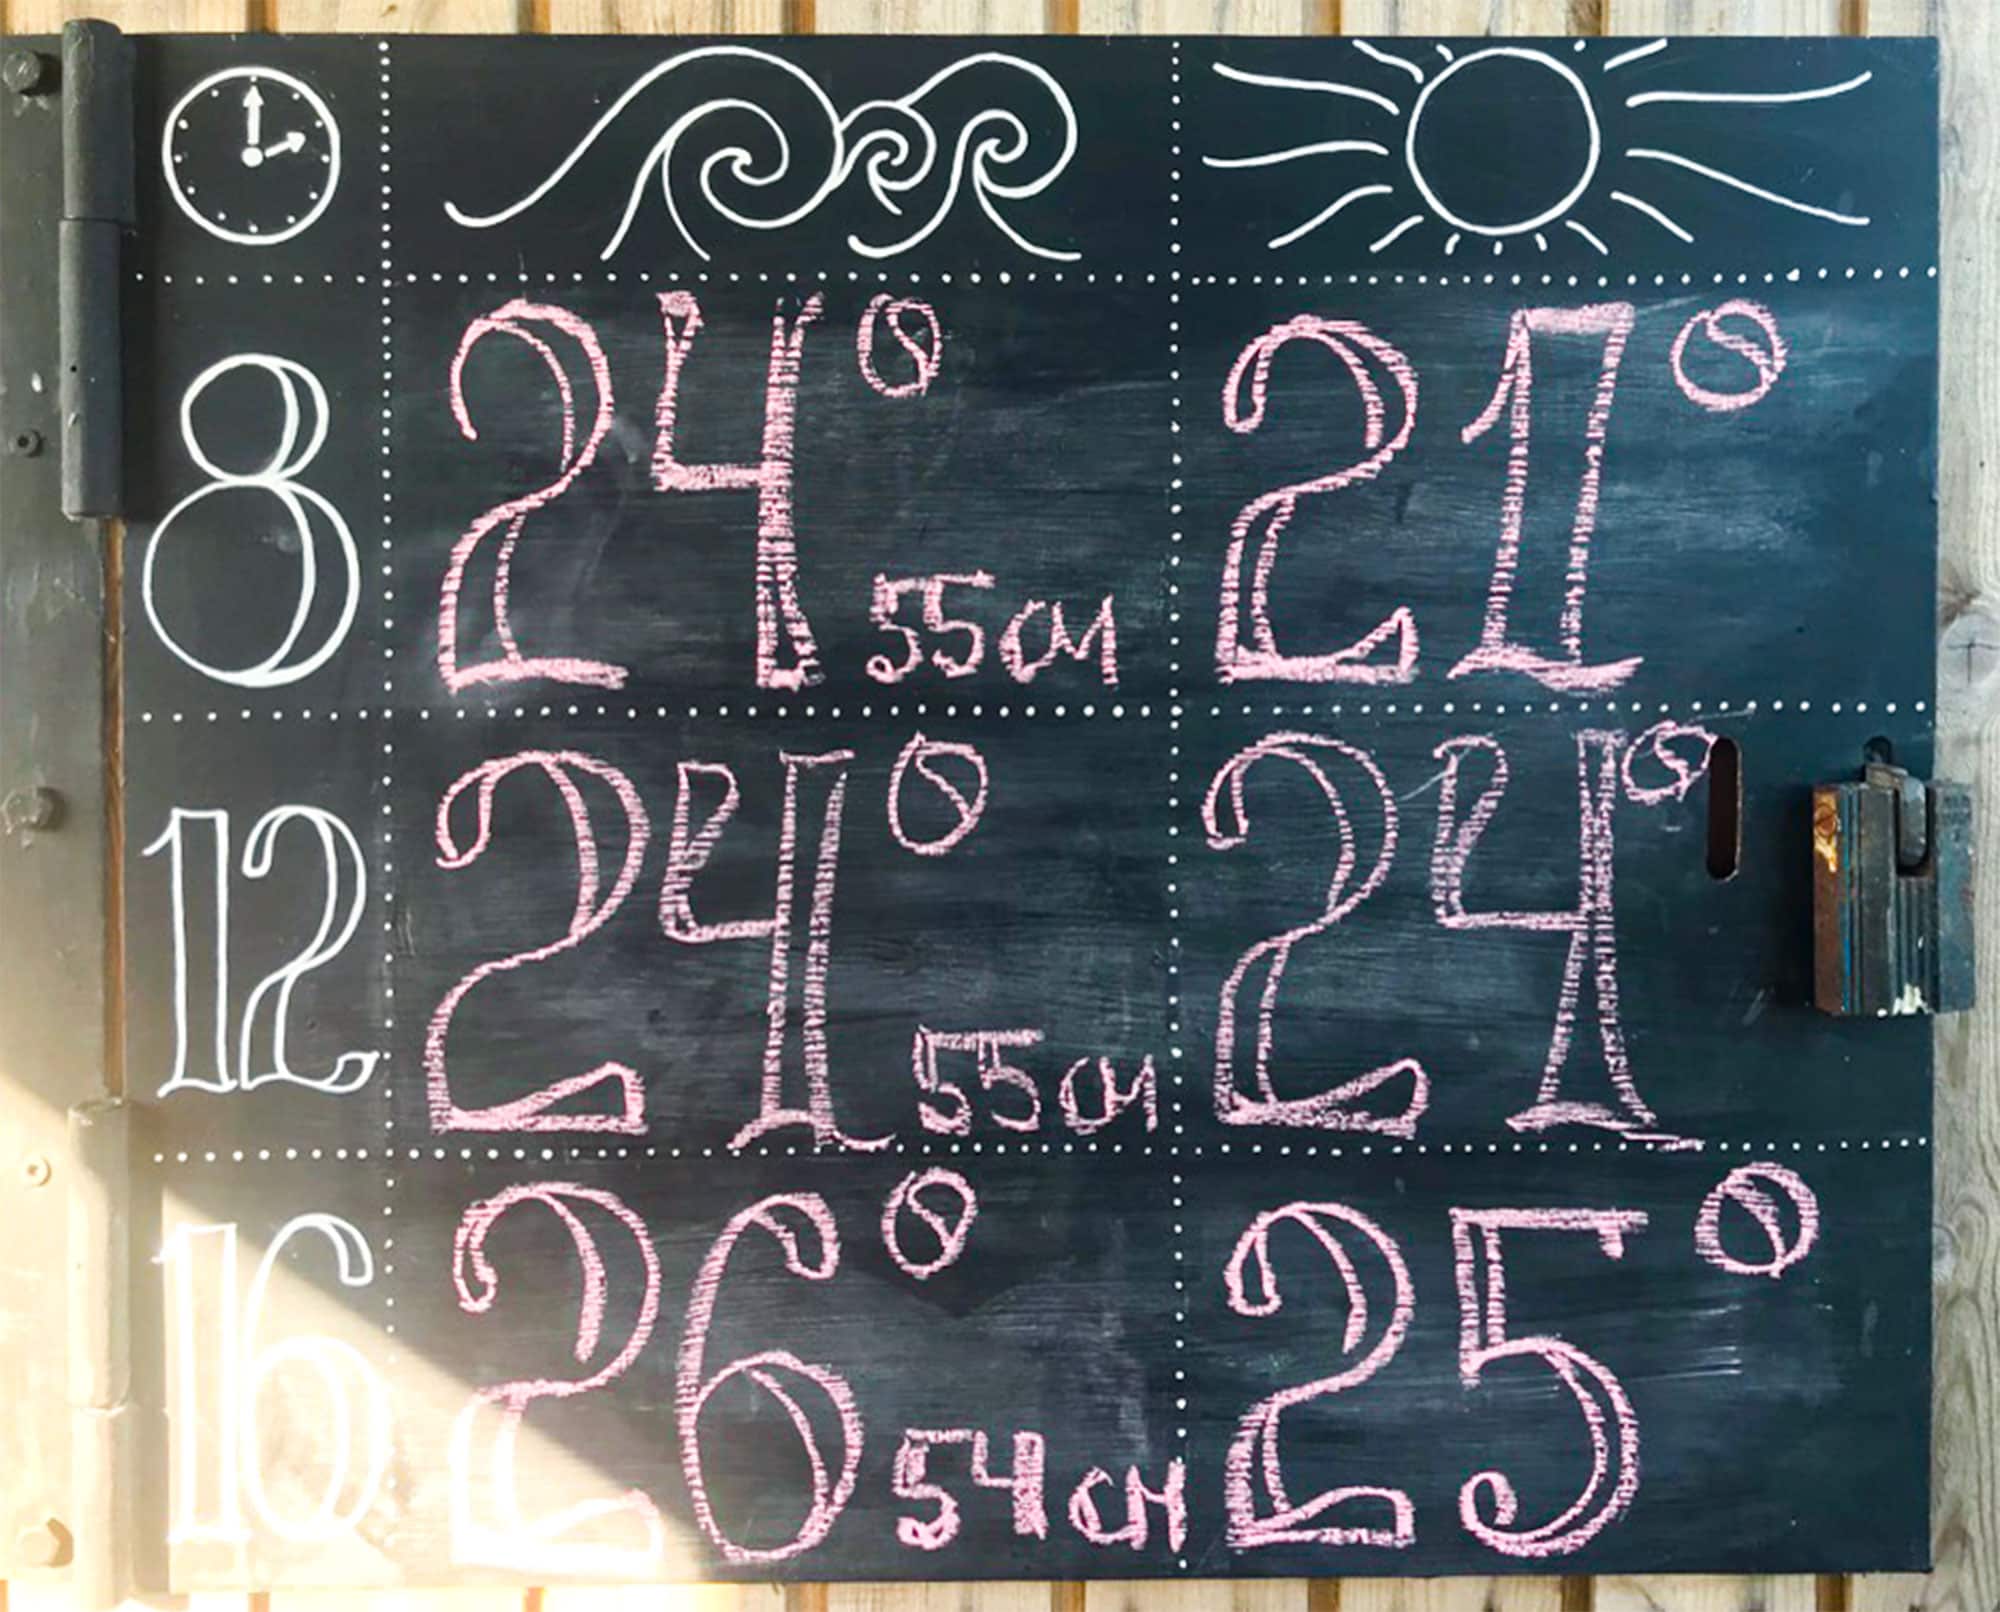 8 24° 55см 21°
12 24° 55см 24°
16 26° 54см 25°